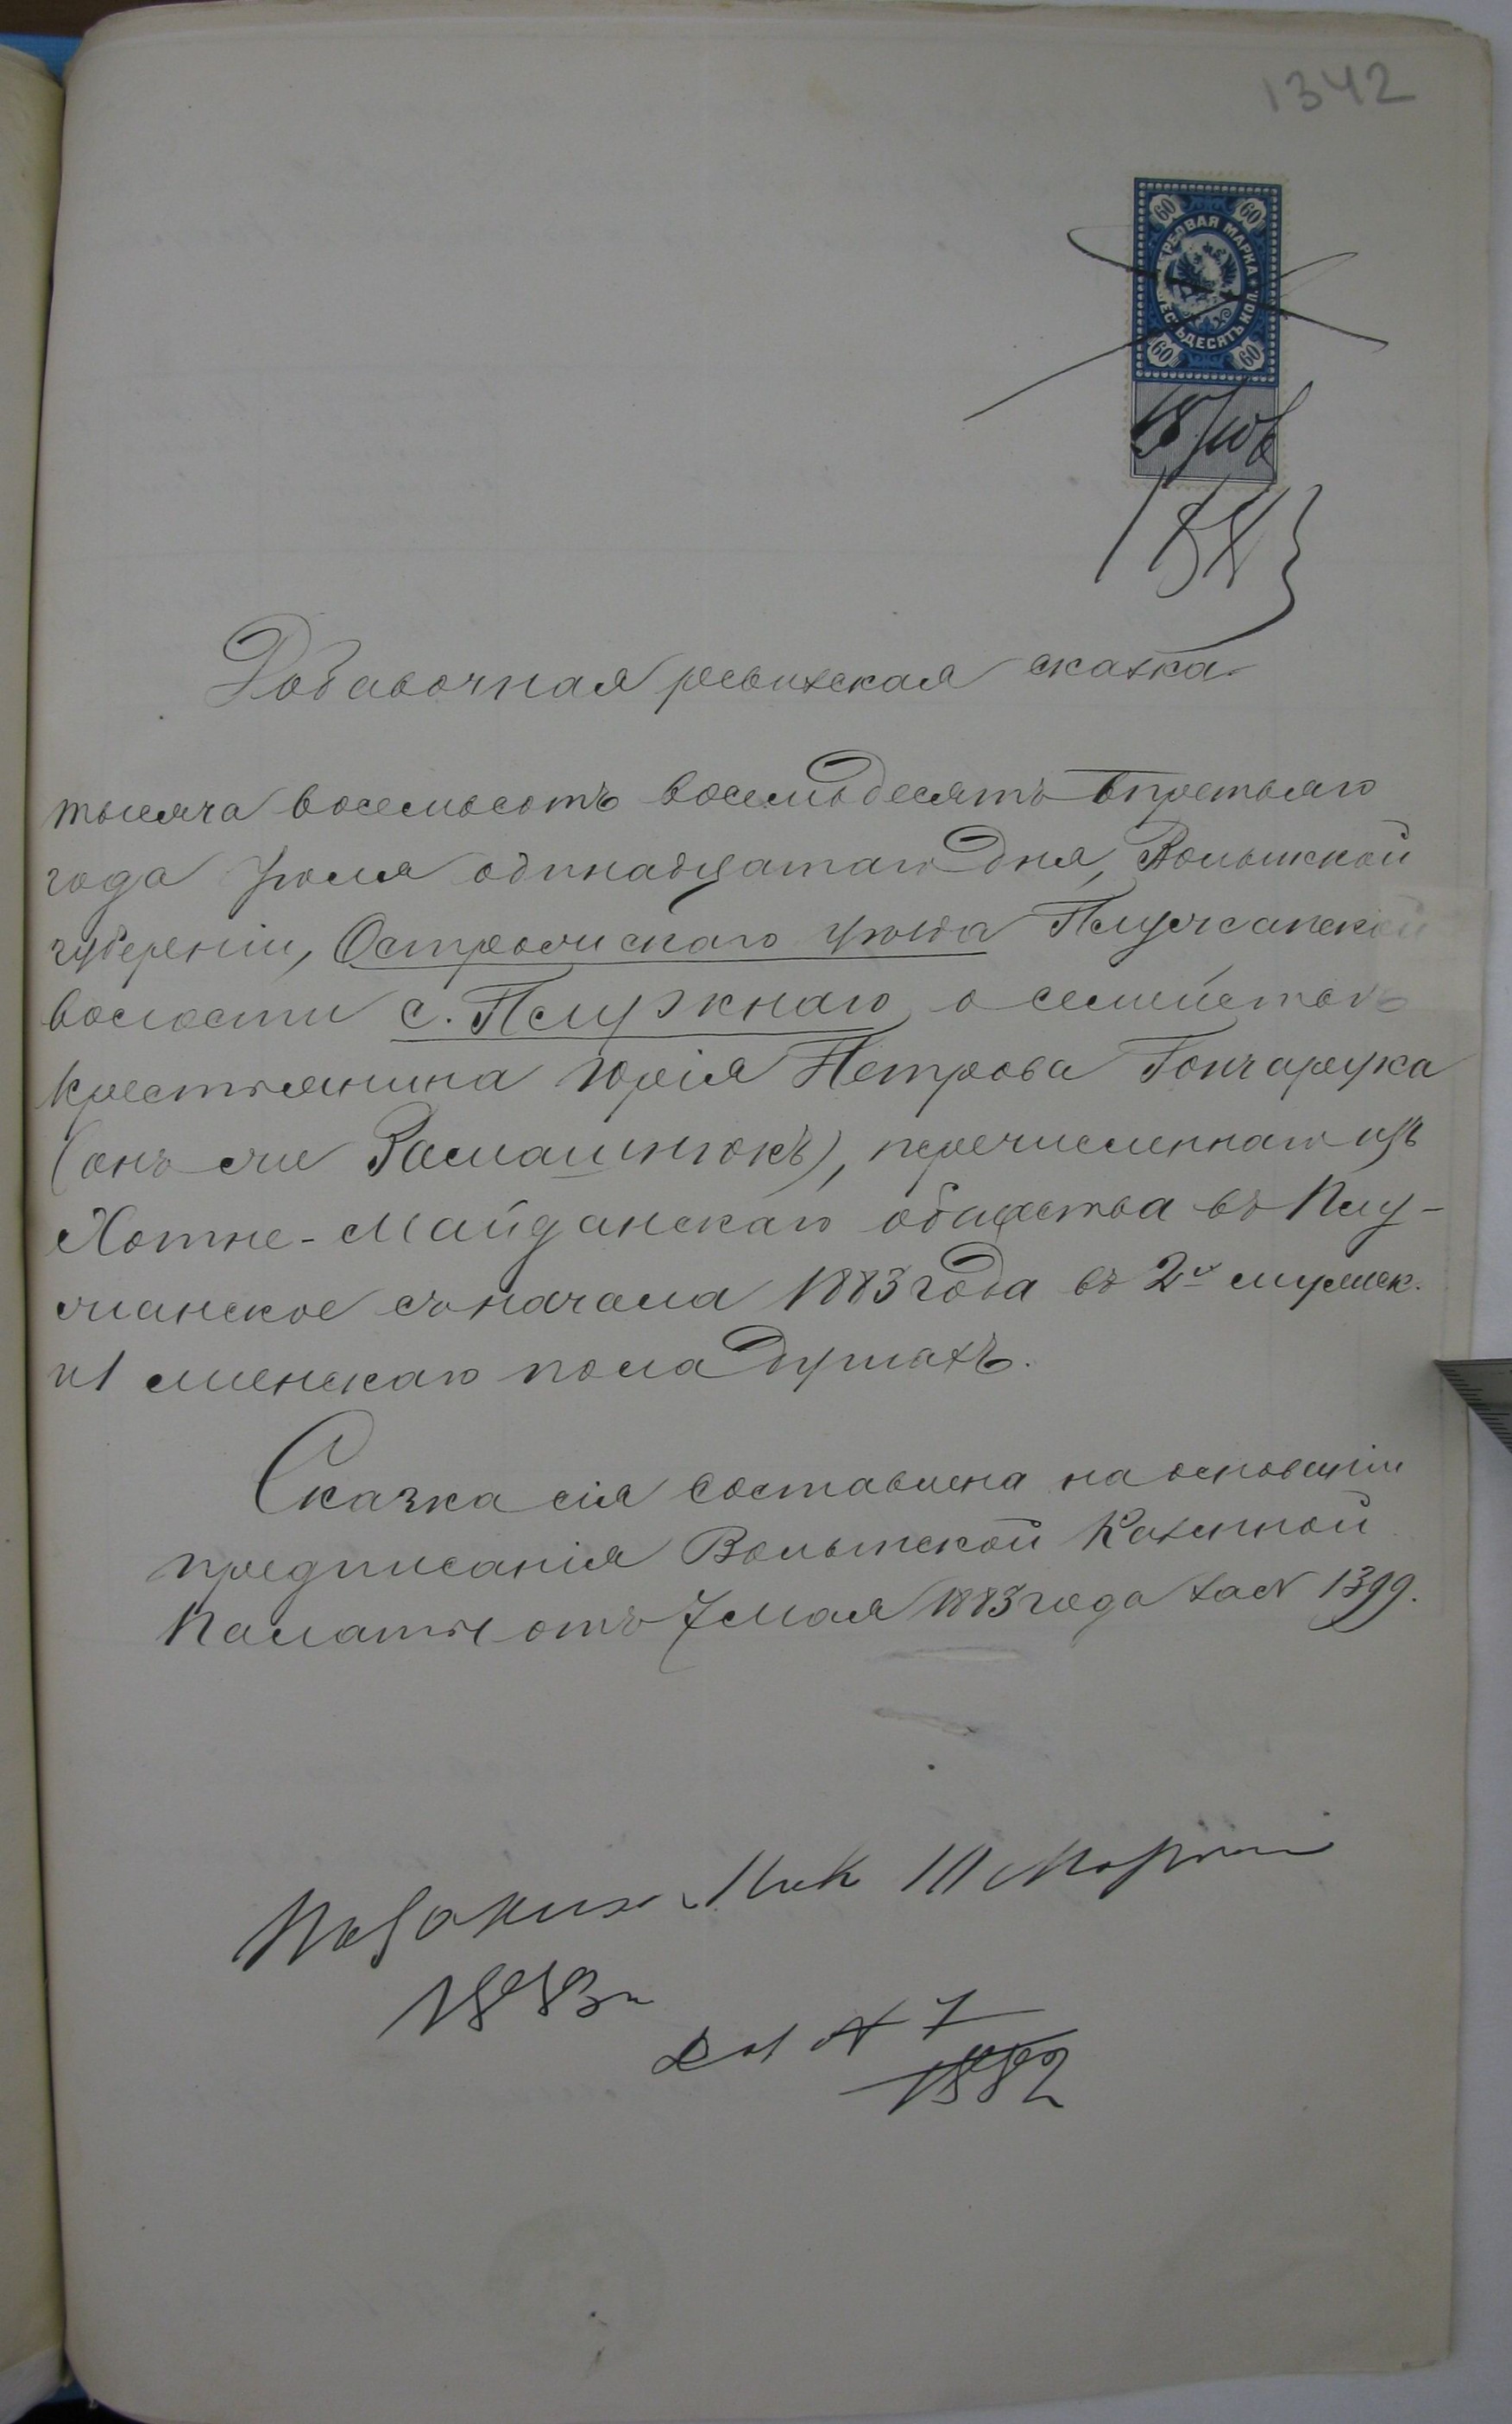 1342
60 60
ГЕРБОВАЯ МАРКА
ШЕСТЬДЕСЯТЪ КОП.
60 60
Добавочная ревизская сказка
тысяча восемьсотъ восемьдесятъ третьяго
года Іюля одинадцатаго дня, Волынской
губерніи, Острожскаго уѣзда Плужанской
волости с. Плужнаго о семействѣ
крестьянина Юрія Петрова Гончарука
(онъ же Ромашнюкъ), перечисленнаго изъ
Хотне-Майданскаго общества въ Плу-
жанское съ начала 1883 года въ 2х мужеск.
и 1 женскаго пола душахъ.
Сказка сія составлена на основаніи
предписанія Волынской Казенной
Палаты отъ 7 Мая 1883 года за № 1399.
1883 г
№ 7
1882